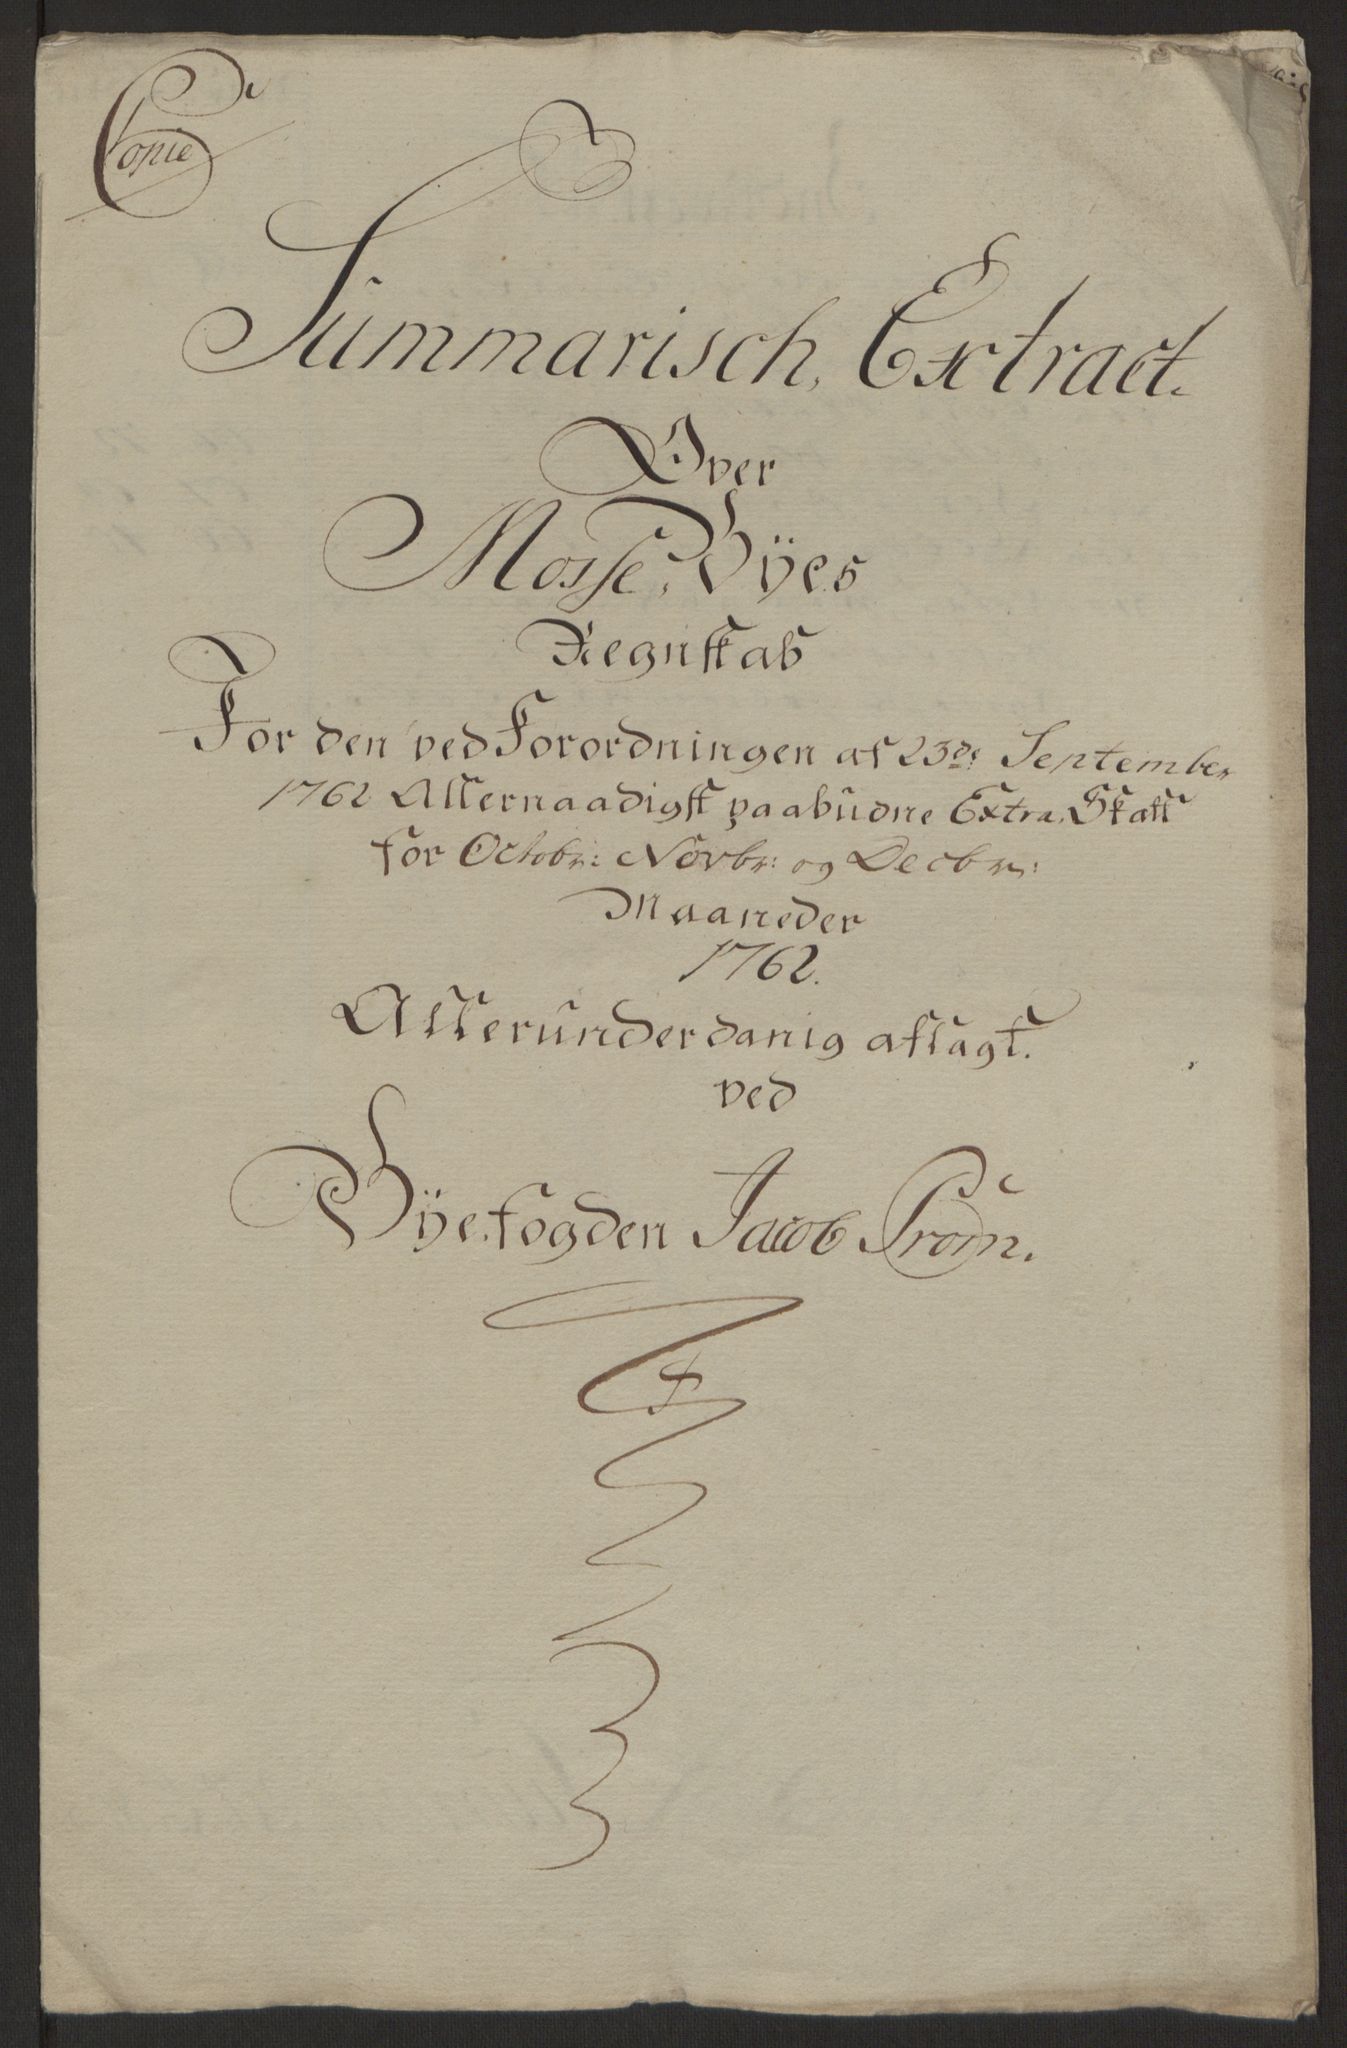 Copie
Summarisch, Extract.
Over
Mosse, Byes
Regnskab
For den ved Forordningen af 23de September
1762 Allernaadigst paabudne Extra, Skatt
for Octobr: Novbr: og Decbr:
Maaneder
1762.
Allerunderdanig aflagt.
ved
Bye,fogden Jacob Prom.